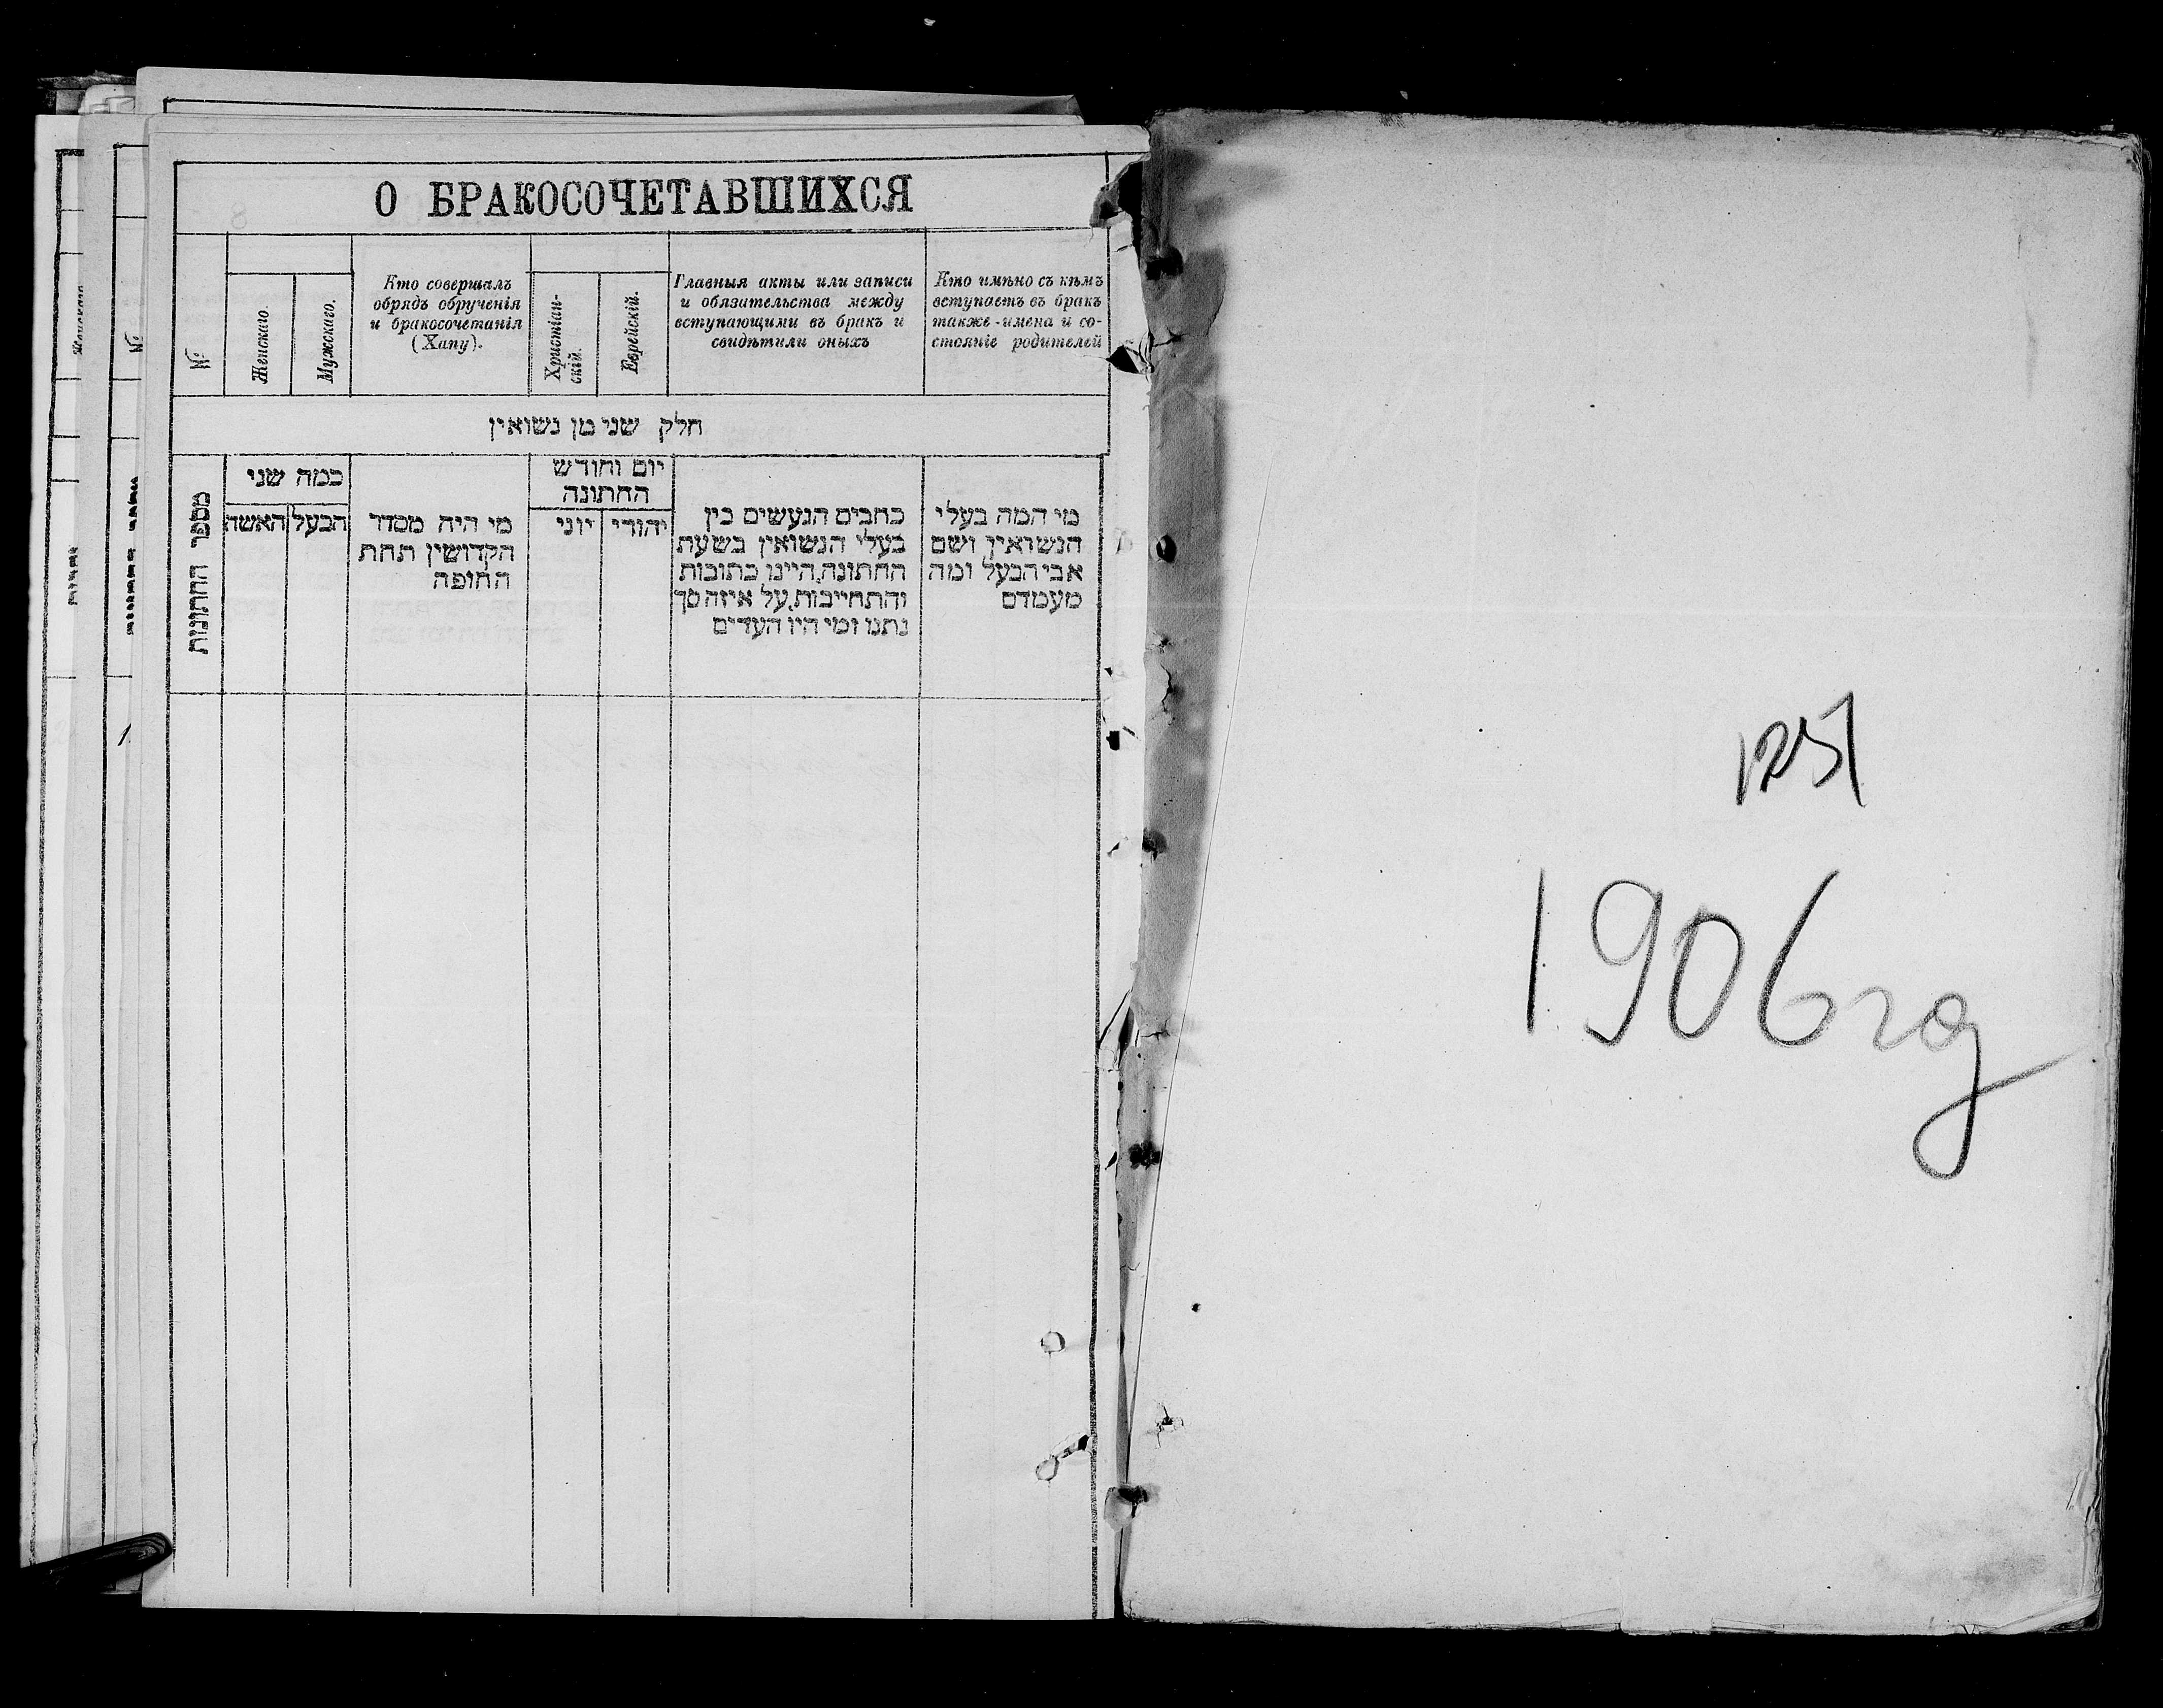 О БРАКОСОЧЕТАВШИХСЯ
№
Женскаго.
Мужскаго.
Кто совершалъ
обрядъ обрученія
и бракосочетанія
(Хапу).
Христіан-
скій.
Еврейскій.
Главныя акты или записи
и обязательства между
вступающими въ бракъ и
свидѣтили оныхъ
Кто имѣно съ кѣмъ
вступаетъ въ бракъ
также-имена и со-
стояніе родителей
חלק שני מן נשואין
מספר החתונות
כמה שני
האשה
הבעל
מי היה מסדר
הקדושין תחת
החופה
יום וחודש
החתונה
יוני
יהודי
כתבים הנעשים בין
בעלי הנשואין בשעת
החתונה, היינו כתובות
והתחייבות, על איזה סך
נתנו ומי היו העדים
מי המה בעלי
הנשואין ושם
אבי הבעל ומה
מעמדם
1906 год